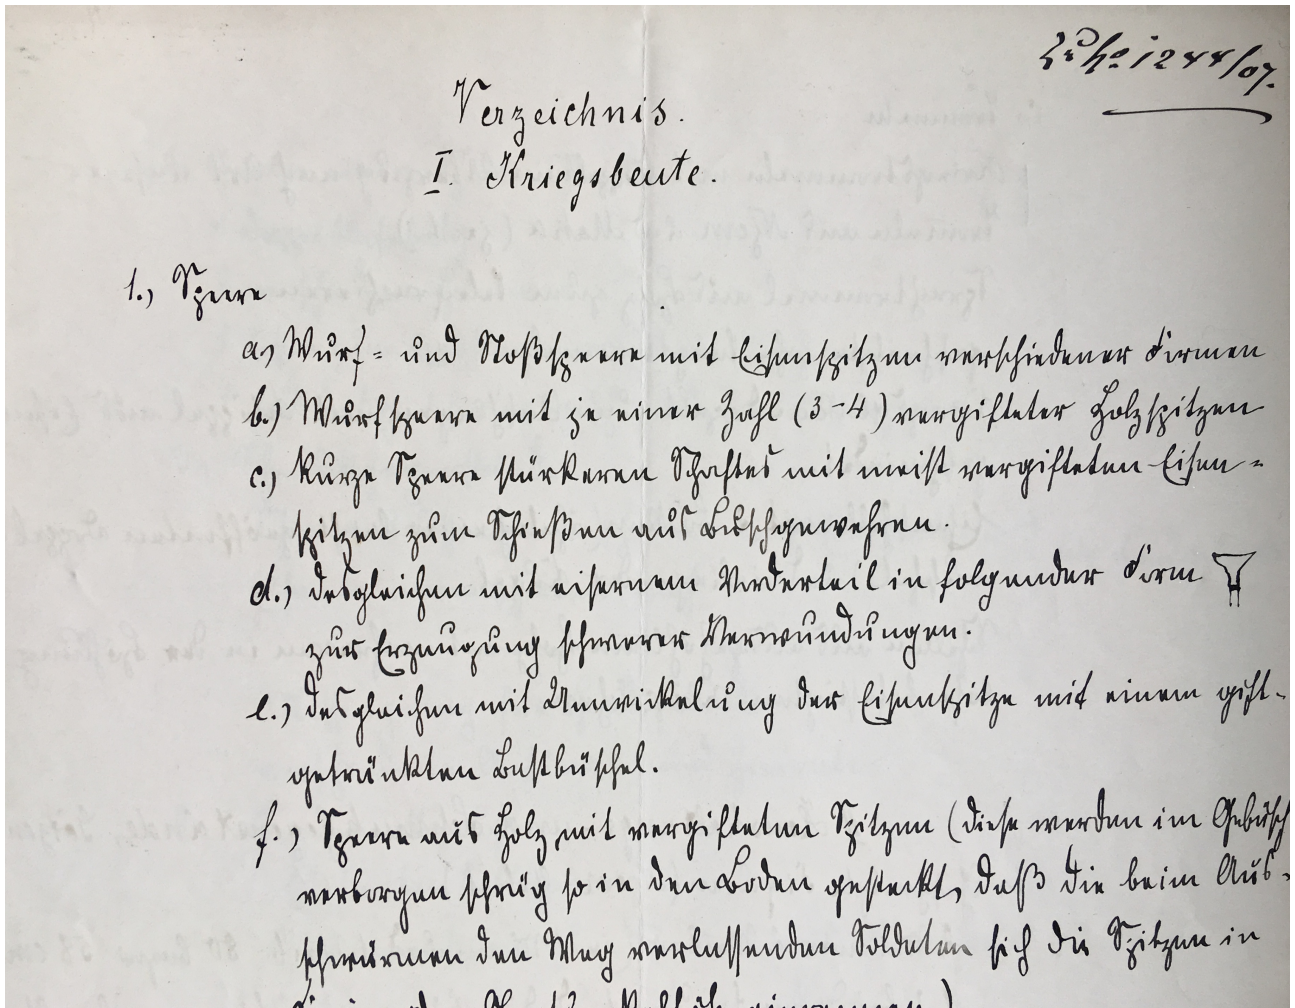 Zu No. 1244/07.
Verzeichnis.
I. Kriegsbeute.
1.) Speere
a.) Wurf- und Stoßspeere mit Eisenspitzen verschiedener Formen
b.) Wurfspeere mit je einer Zahl (3-4) vergifteter Holzspitzen
c.) kurze Speere stärkeren Schaftes mit meist vergifteten Eisen-
spitzen zum Schießen aus Buschgewehren.
d.) desgleichen mit eisernem Vorderteil in folgender Form
zur Erzeugung schwerer Verwundungen.
e.) desgleichen mit Umwickelung der Eisenspitze mit einem gift-
getränkten Bastbüschel.
f.) Speere aus Holz mit vergifteten Spitzen (diese werden im Gebüsch
verborgen schräg so in den Boden gesteckt, daß die beim Aus-
schwärmen den Weg verlassenden Soldaten sich die Spitzen in